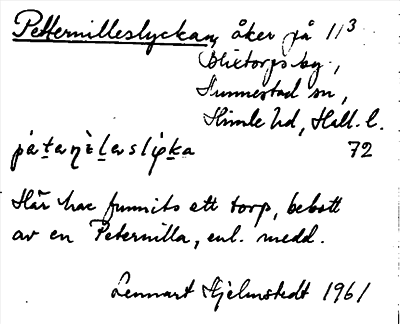 Petternilleslyckan, åker på 1/1³
Blixtorps by,
Tummestad sn,
Himle hd, Hall. l.
72
Här har funnits ett torp, bebott
av en Peternilla, enl. medd.
Lennart Hjelmstedt 1961